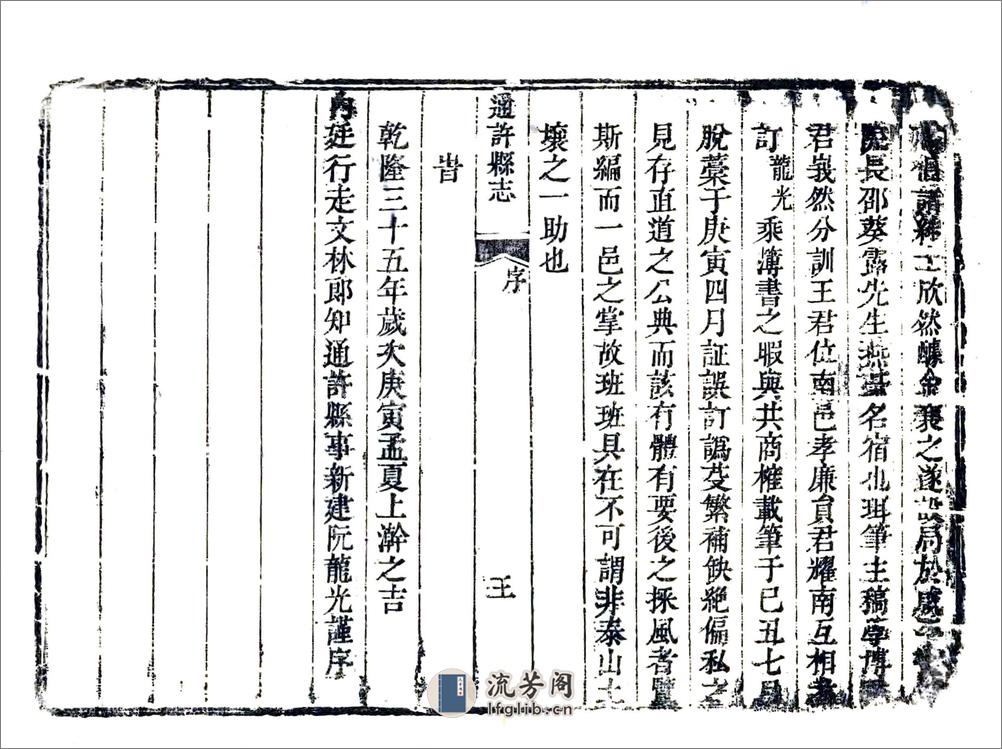 欣然醵金襄之遂設局於
院長邵葵露先生燕臺名宿也珥筆主稿學博
君峩然分訓王君位南邑孝廉貟君耀南互相
訂龍光乘簿書之暇與共商榷載筆于己丑七月
脫藁于庚寅四月証誤訂譌芟繁補缺絕偏私之
見存直道之公典而該有體有要後之採風者覽
斯編而一邑之掌故班班具在不可謂非泰山土
壤之一助也
通許縣志
序
王
旹
乾隆三十五年歲次庚寅孟夏上澣之吉
內廷行走文林郎知通許縣事新建阮龍光謹序
流芳阁
lfglib.cn